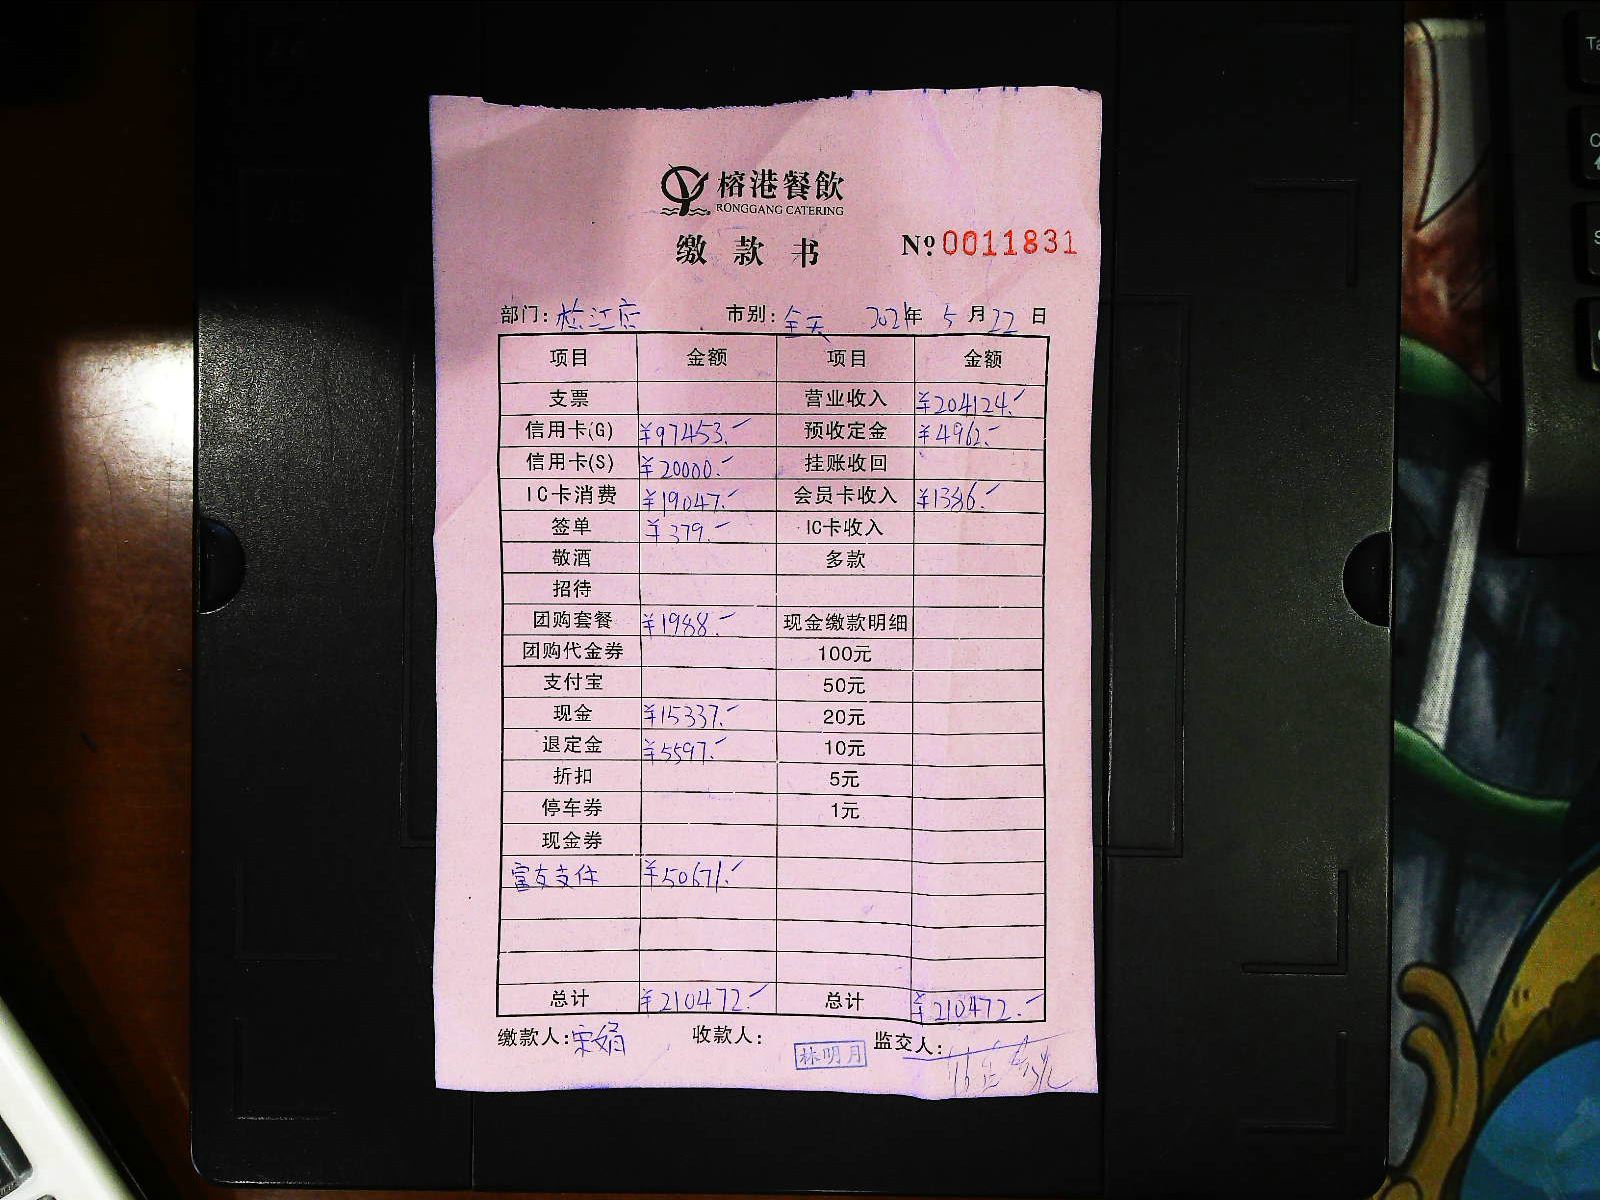 榕港餐飲
RONGGANG CATERING
缴款书 № 0011831
部门: 松江店 市别: 全天 2021年 5月 22日
项目 金额 项目 金额
支票 营业收入 ¥204124.-
信用卡(G) ¥97453.- 预收定金 ¥4962.-
信用卡(S) ¥20000.- 挂账收回
IC卡消费 ¥19047.- 会员卡收入 ¥1386.-
签单 ¥379.- IC卡收入
敬酒 多款
招待
团购套餐 ¥1988.- 现金缴款明细
团购代金券 100元
支付宝 50元
现金 ¥15337.- 20元
退定金 ¥5597.- 10元
折扣 5元
停车券 1元
现金券
富友支付 ¥50671.-
总计 ¥210472.- 总计 ¥210472.-
缴款人: 宋娟 收款人: 林明月 监交人: